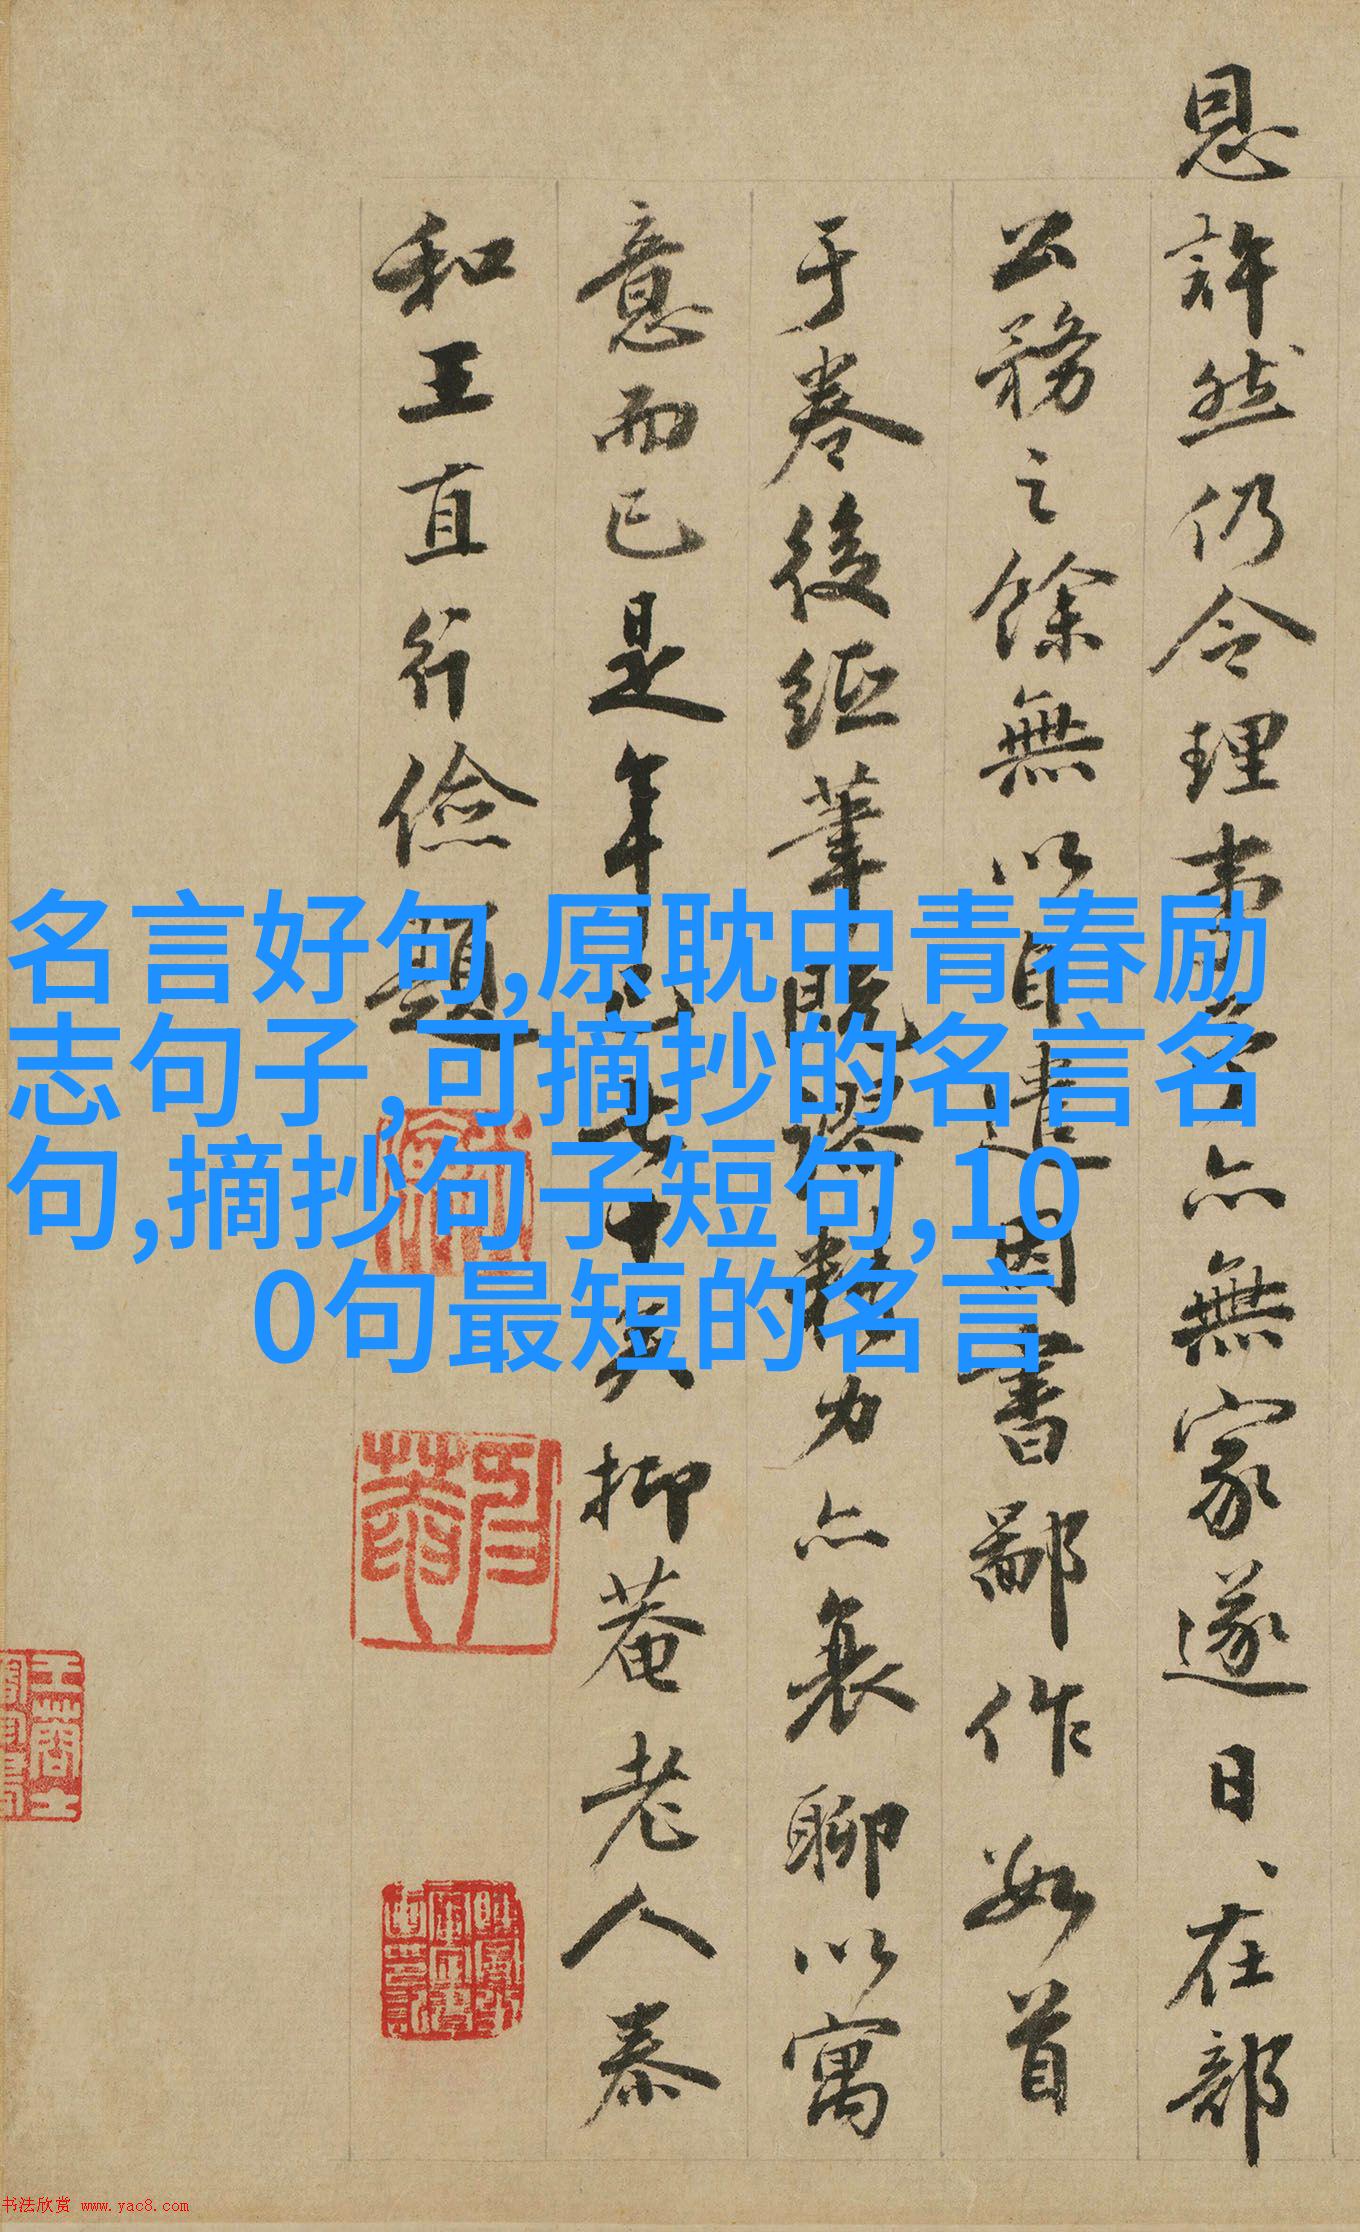 恩許然仍令理事亦無家遂日、在部
公務之餘無以自遣因書鄙作数首
于卷後紙筆既謬精力亦衰聊以寓
意而已是年已七十矣抑菴老人泰
和王直行儉題
名言好句,原耽中青春励
志句子,可摘抄的名言名
句,摘抄句子短句,10
0句最短的名言
书法欣赏 www.yac8.com